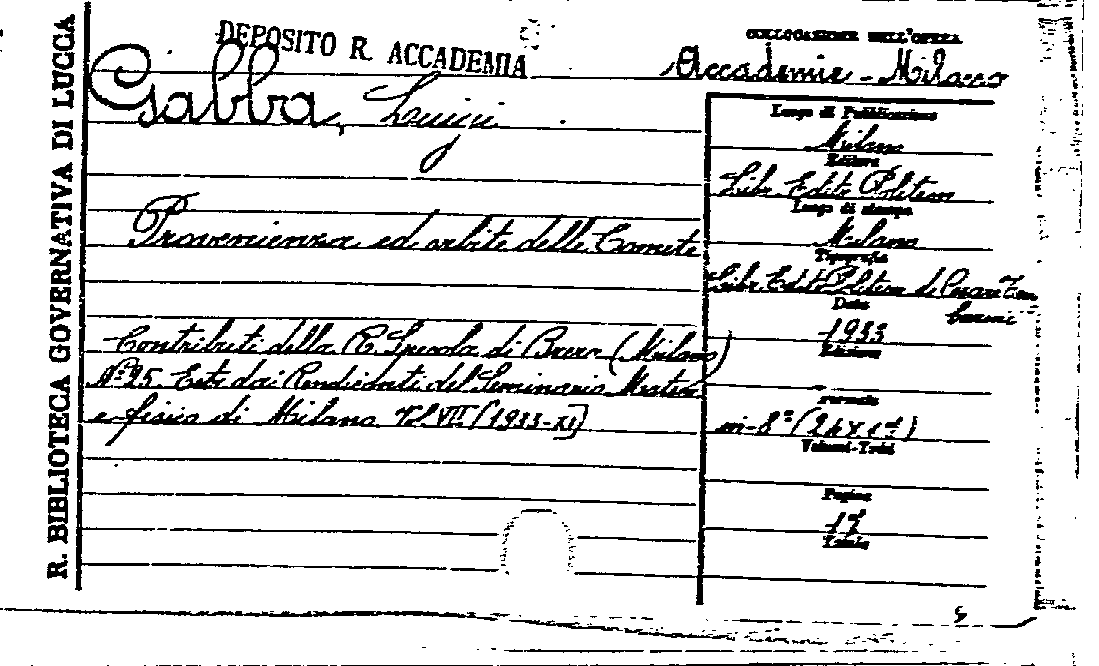 R. BIBLIOTECA GOVERNATIVA DI LUCCA
DEPOSITO R. ACCADEMIA
COLLOCAZIONE DELL'OPERA
Accademie - Milano
Gabba, Luigi
Provenienza ed orbite delle Comete
Contributi della R. Specola di Brera (Milano)
N° 25. Estr. dai Rendiconti del Seminario Matem
e fisico di Milano Vol VII (1933-XI)
Luogo di Pubblicazione
Milano
Editore
Libr. Editr. Politecn
Luogo di stampa
Milano
Tipografia
Libr. Edit. Politecn di Cesare Tam
burini
Data
1933
Edizione
Formato
in-8° (24 x 17)
Volumi-Tomi
Pagine
17
Tavole